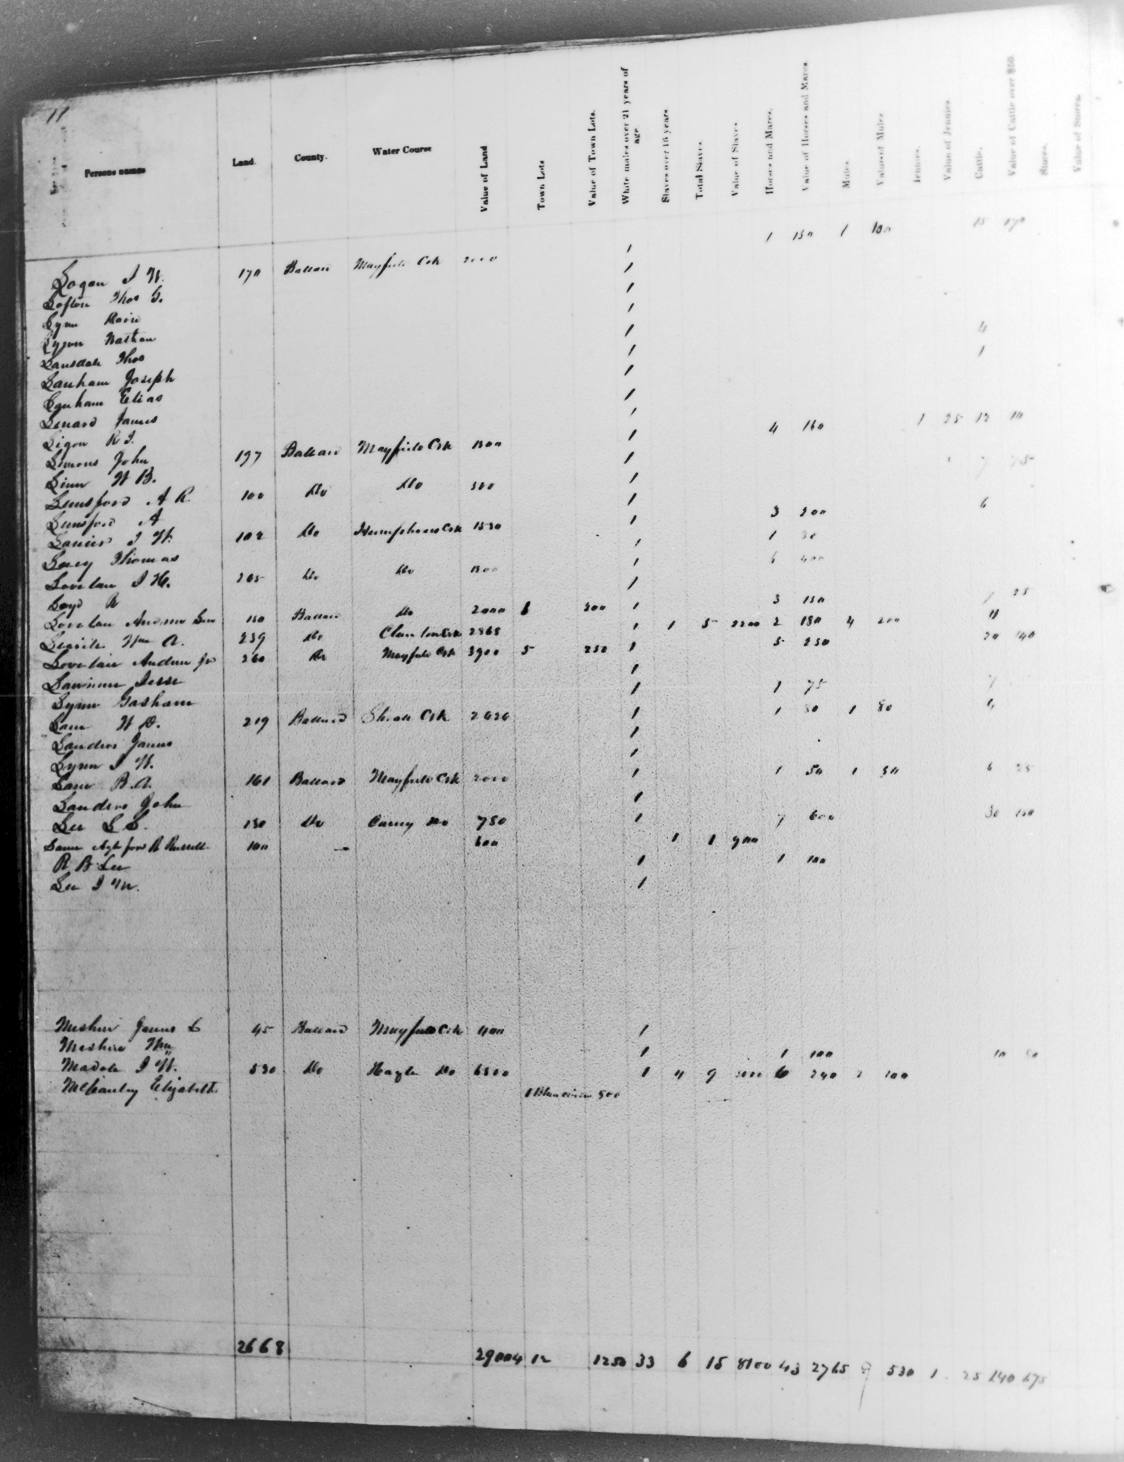 11
Persons names Land. County. Water Course Value of Land Town Lots Value of Town Lots. White males over 21 years of age Slaves over 16 years Total Slaves. Value of Slaves Horses and Mares. Value of Horses and Mares. Mules Value of Mules Jennies. Value of Jennies Cattle. Value of Cattle over $50. Stores. Value of Stores.
Logan J W. 170 Ballard Mayfield Crk 2000 1 1 150 1 100 15 170
Lofton Thos G. 1
Lynn 1
Lynn Nathan 1
Lansdale Thos 1 4
Lanham Joseph 1 1
Lanham Elias 1
Lenard James 1
Ligon R J. 1 4 160 1 25 12 10
Lemons John 197 Ballard Mayfield Crk 1500 1
Linn W B. 1 7 75
Lunsford A R. 100 Do Do 500 1
Lunsford A 1 3 200 6
Lanier J W. 102 Do Humphreys Crk 1530 1 1 30
Lacey Thomas 1 6 400
Lovelace J H. 205 Do Do 1500 1
Loyd R 1 3 150 25
Lovelace Andrew Sen 150 Ballard Do 2000 6 500 1 5 2200 2 150 4 200 11
Wm A. 239 Do Clanton Crk 2868 1 5 250 20 140
Lovelace Andrew Jr 260 Do Mayfield Crk 3900 5 250 1
Lawrence Jesse 1 1 75 7
Lynn Gasham 1
Lane W D. 219 Ballard Crk 2626 1 1 80 1 80 4
Landers James 1
Lynn J W. 1
Lane B. A. 161 Ballard Mayfield Crk 2000 1 1 50 1 50 6 25
Landers John 1
Lee L S. 150 Do Caney Do 750 1 7 600 30 150
Same Agt for R Russell 100 — 600 1 1 900
R B Lee 1 1 100
Lee J M. 1
Meshew James L 45 Ballard Mayfield Crk 400 1
Meshew Wm 1 1 100 10 50
Madole J W. 530 Do Hazle Do 6500 1 4 9 5000 6 240 2 100
Elizabeth 1 Blandville 500
2668 29004 12 1250 33 6 15 8100 43 2765 9 530 1 25 140 675